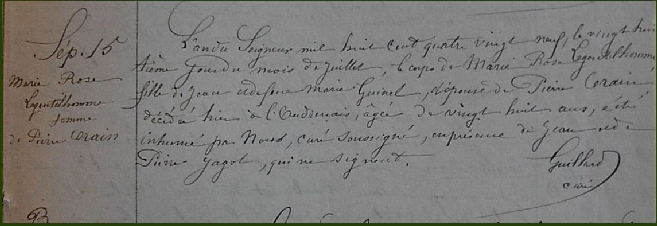 Sép. 15
Marie Rose
Legentilhomme
femme
de Pierre Orain
L'an du Seigneur mil huit cent quatre vingt neuf, le vingt hui
tième jour du mois de Juillet, le corps de Marie Rose Legentilhomme
fille de Jean et de feue Marie Guinel, épouse de Pierre Orain
décédé hier à, âgée de vingt huit ans, a été
inhumé par Nous, curé soussigné, en présence de Jean et de
Pierre Jagot, qui ne signent.
Guillard
curé